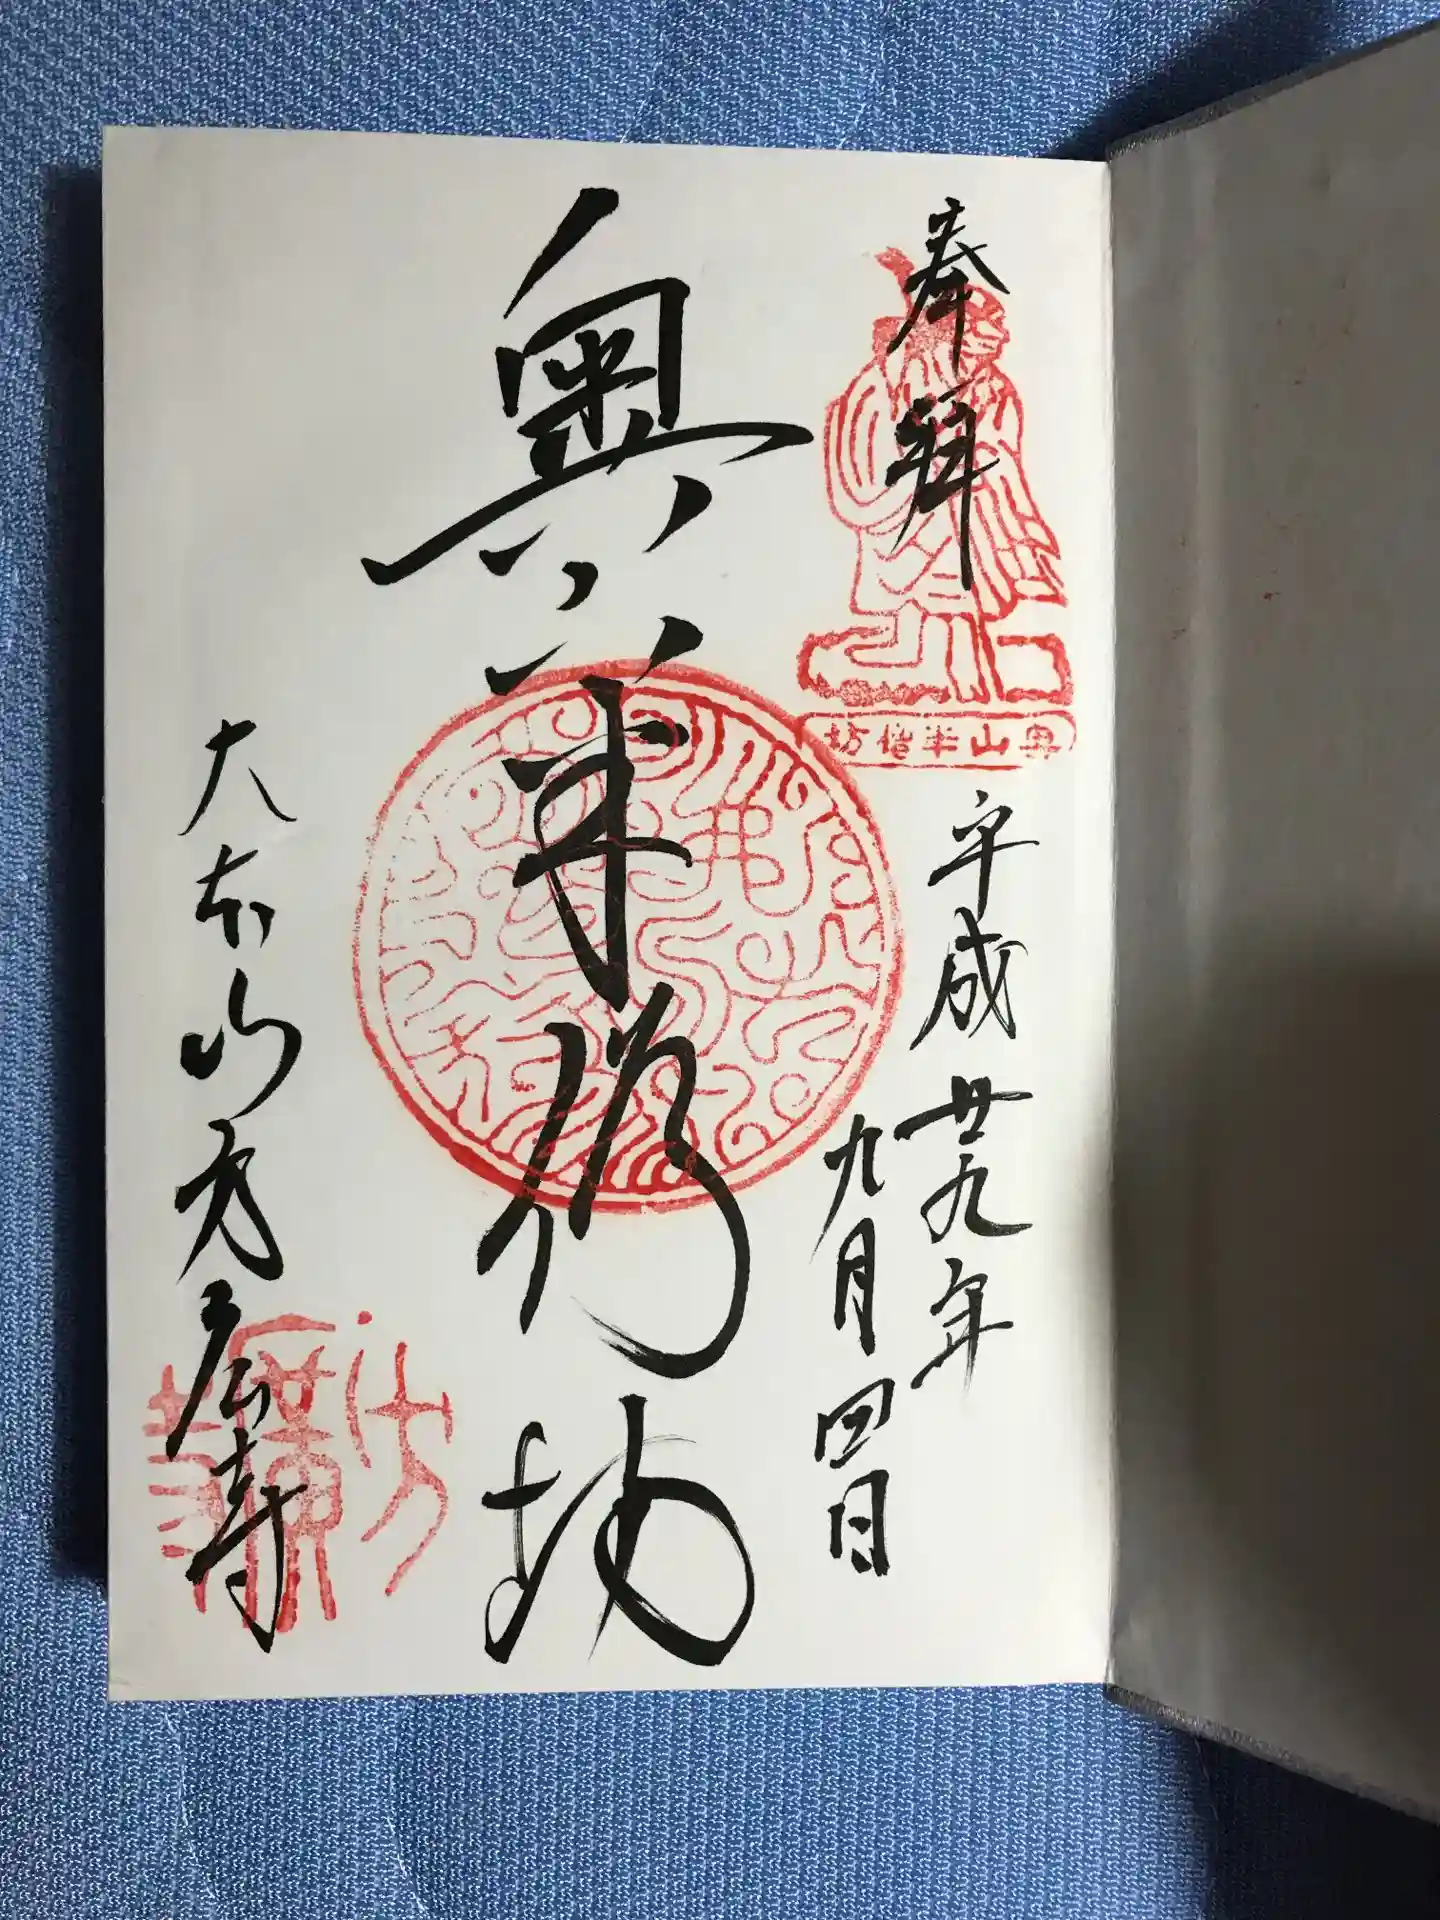 奉拝
奥山半僧坊
平成廿九年
九月四日
奥山半僧坊
大本山方広寺